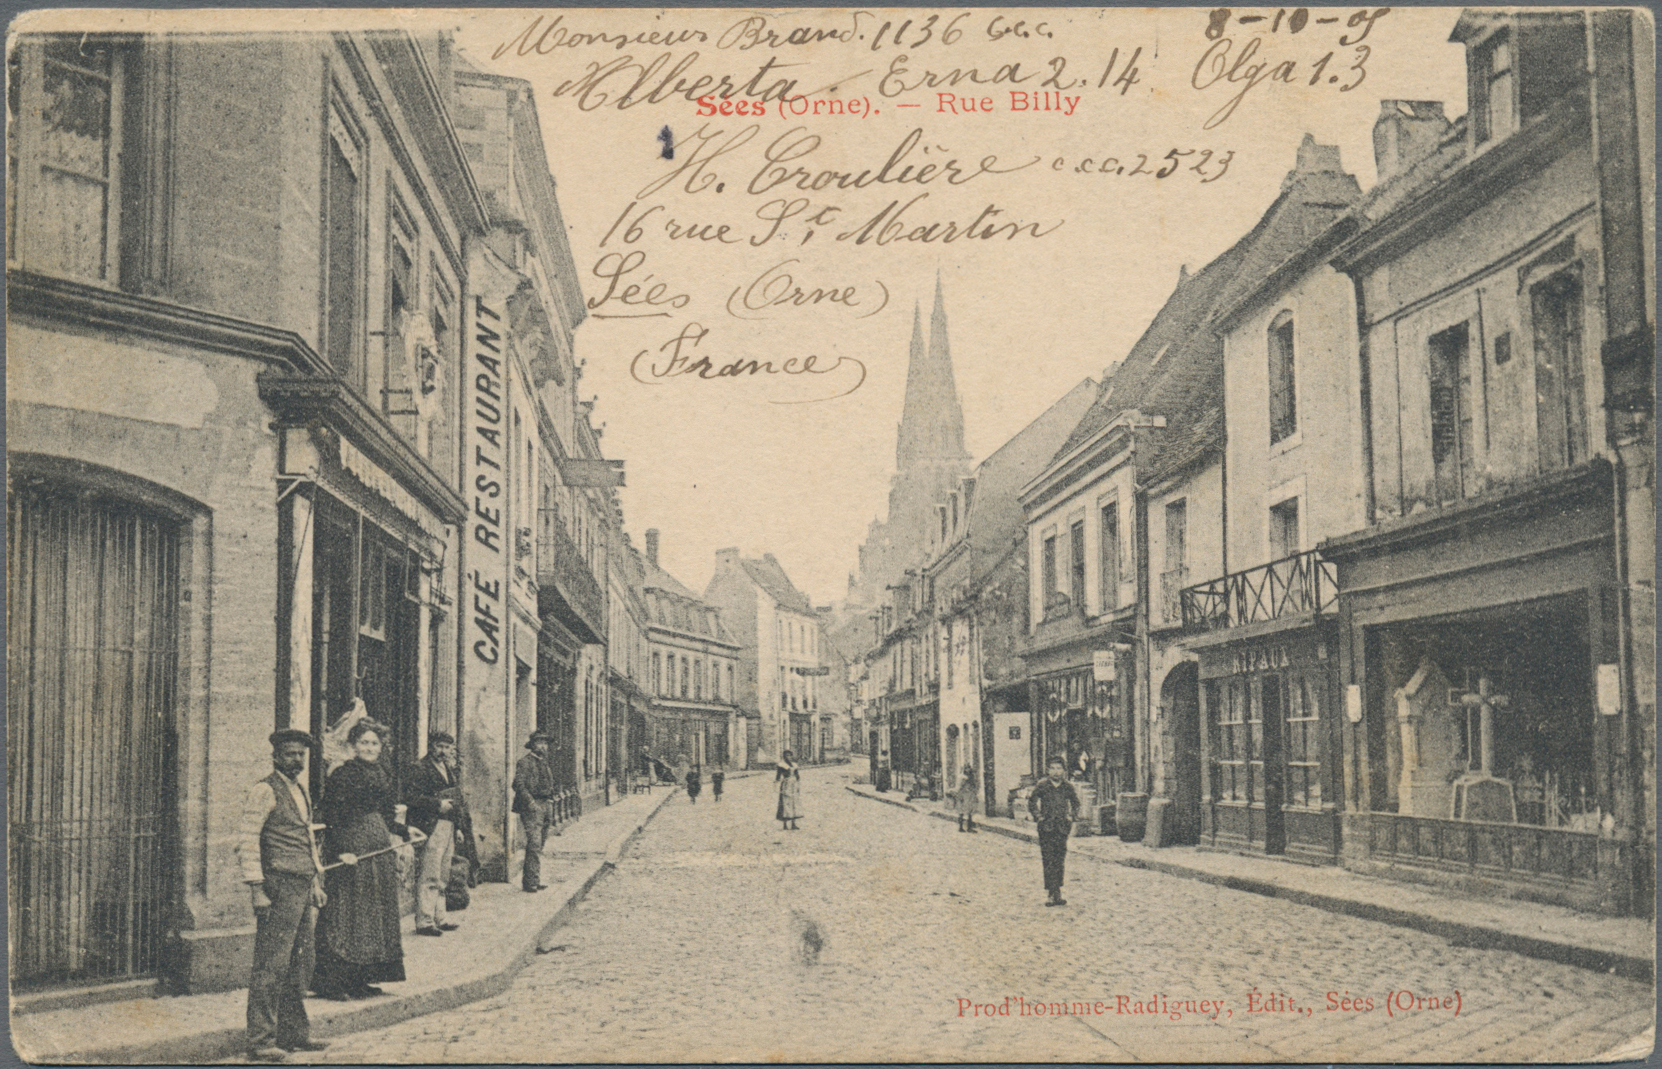 Monsieur Brand. 1136 c.c.c. 8-10-05
Alberta. Erna 2.14 Olga 1.3
Sées (Orne). — Rue Billy
H. Croulière c.c.c. 2523
16 rue St Martin
Sées (Orne)
(France)
CAFÉ RESTAURANT
RIPAUX
Prod'homme-Radiguey, Édit., Sées (Orne)